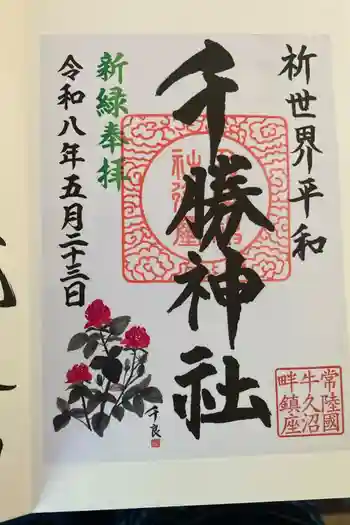 祈世界平和
千勝神社
新緑奉拝
令和八年五月二十三日
常陸國
牛久沼
畔鎮座
千良